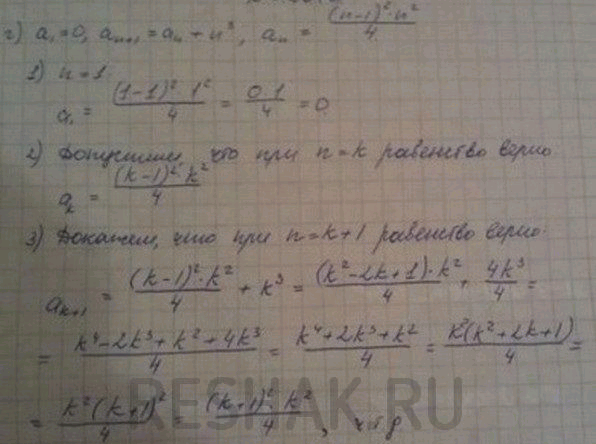 г) a₁ = 0, aₙ₊₁ = aₙ + n³, aₙ = (n-1)²·n²/4
1) n = 1
a₁ = (1-1)²·1²/4 = 0·1/4 = 0
2) Допустим, что при n = k равенство верно
aₖ = (k-1)²·k²/4
3) Докажем, что при n = k+1 равенство верно.
aₖ₊₁ = (k-1)²·k²/4 + k³ = (k²-2k+1)·k²/4 + 4k³/4 =
= k⁴-2k³+k²+4k³/4 = k⁴+2k³+k²/4 = k²(k²+2k+1)/4 =
= k²(k+1)²/4 = (k+1)²·k²/4, ч.т.д
RESHAK.RU